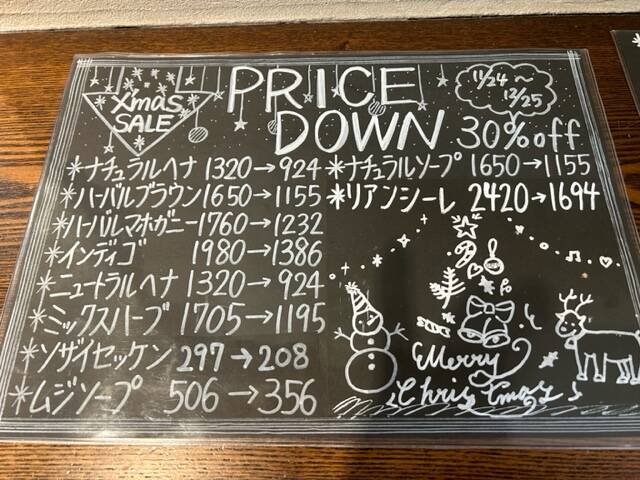 Xmas
SALE
PRICE
DOWN
11/24～
12/25
30%off
*ナチュラルヘナ 1320→924
*ハーバルブラウン 1650→1155
*ハーバルマホガニー 1760→1232
*インディゴ 1980→1386
*ニュートラルヘナ 1320→924
*ミックスハーブ 1705→1195
*ソザイセッケン 297→208
*ムジソープ 506→356
*ナチュラルソープ 1650→1155
*リアンシーレ 2420→1694
Merry
Christmas